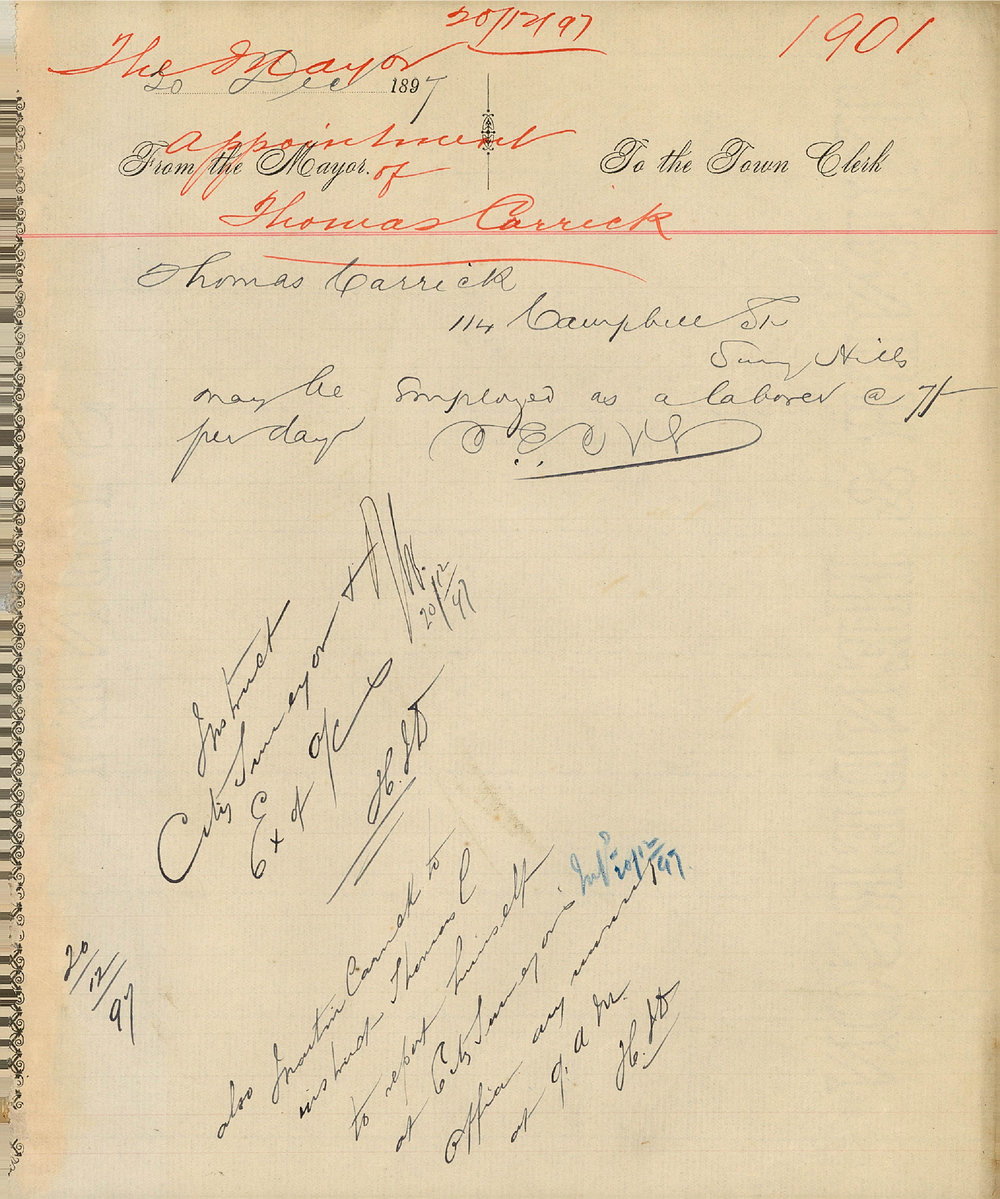 20/12/97
1901
The Mayor
20 Dec 1897
Appointment
From the Mayor. To the Town Clerk
of
Thomas Carrick
Thomas Carrick
114 Campbell St
Surry Hills
may be employed as a laborer @ 7/-
per day
20/12/97
Instruct
City Surveyor &
Ex of a/cs
H.J.D
20/12/97
also
instruct Thomas C
to report himself
at City Surveyor's
Office any morning
at 9. a.m.
H.J.D
20/12/97